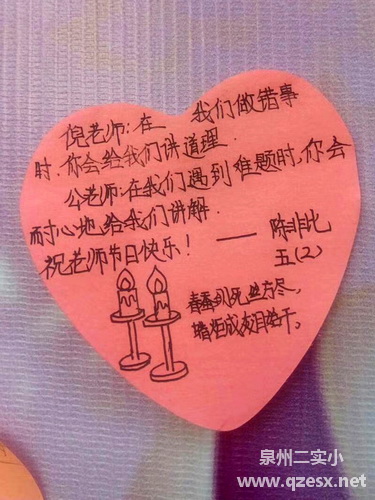 倪老师:在 我们做错事
时,你会给我们讲道理.
公老师:在我们遇到难题时,你会
耐心地给我们讲解.
祝老师节日快乐!—— 陈非比
五(2)
春蚕到死丝方尽,
蜡炬成灰泪始干。
泉州二实小
www.qzesx.net